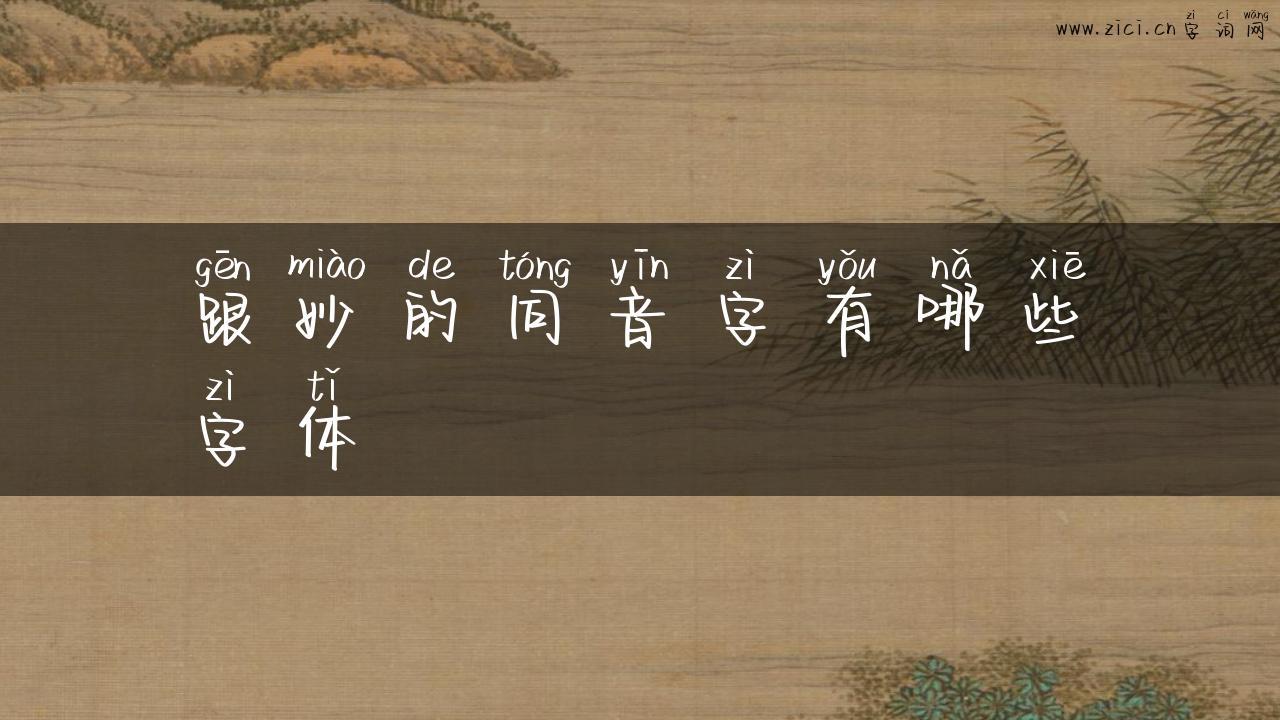 www.zici.cn 字词网
zì cí wǎng
gēn miào de tóng yīn zì yǒu nǎ xiē
跟妙的同音字有哪些
zì tǐ
字体